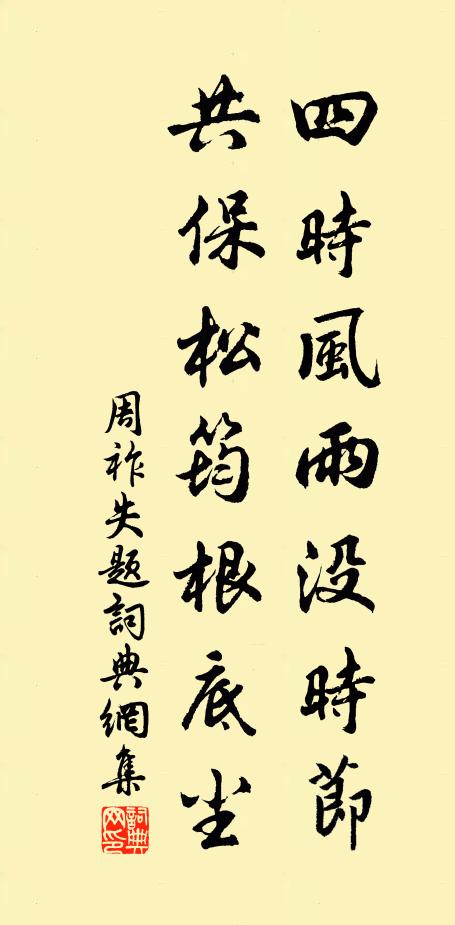 四時風雨没時節
共保松筠根底坐
周祚失題詞典網集
詞典網印